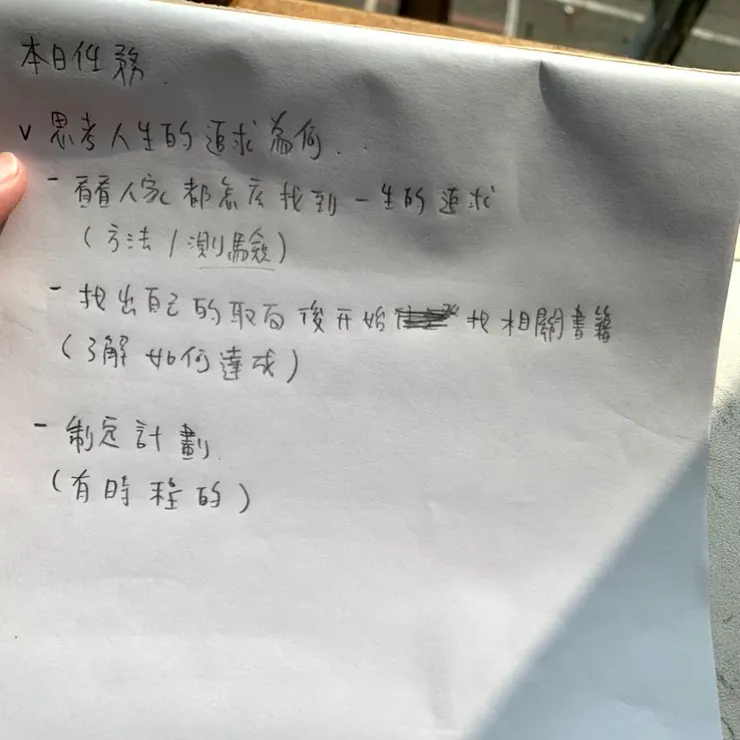 本日任務.
v 思考人生的追求為何...
- 看看人家都怎麼找到一生的追求
(方法/測驗)
- 找出自己的取向後開始找相關書籍
(了解如何達成)
- 制定計劃.
(有時程的)